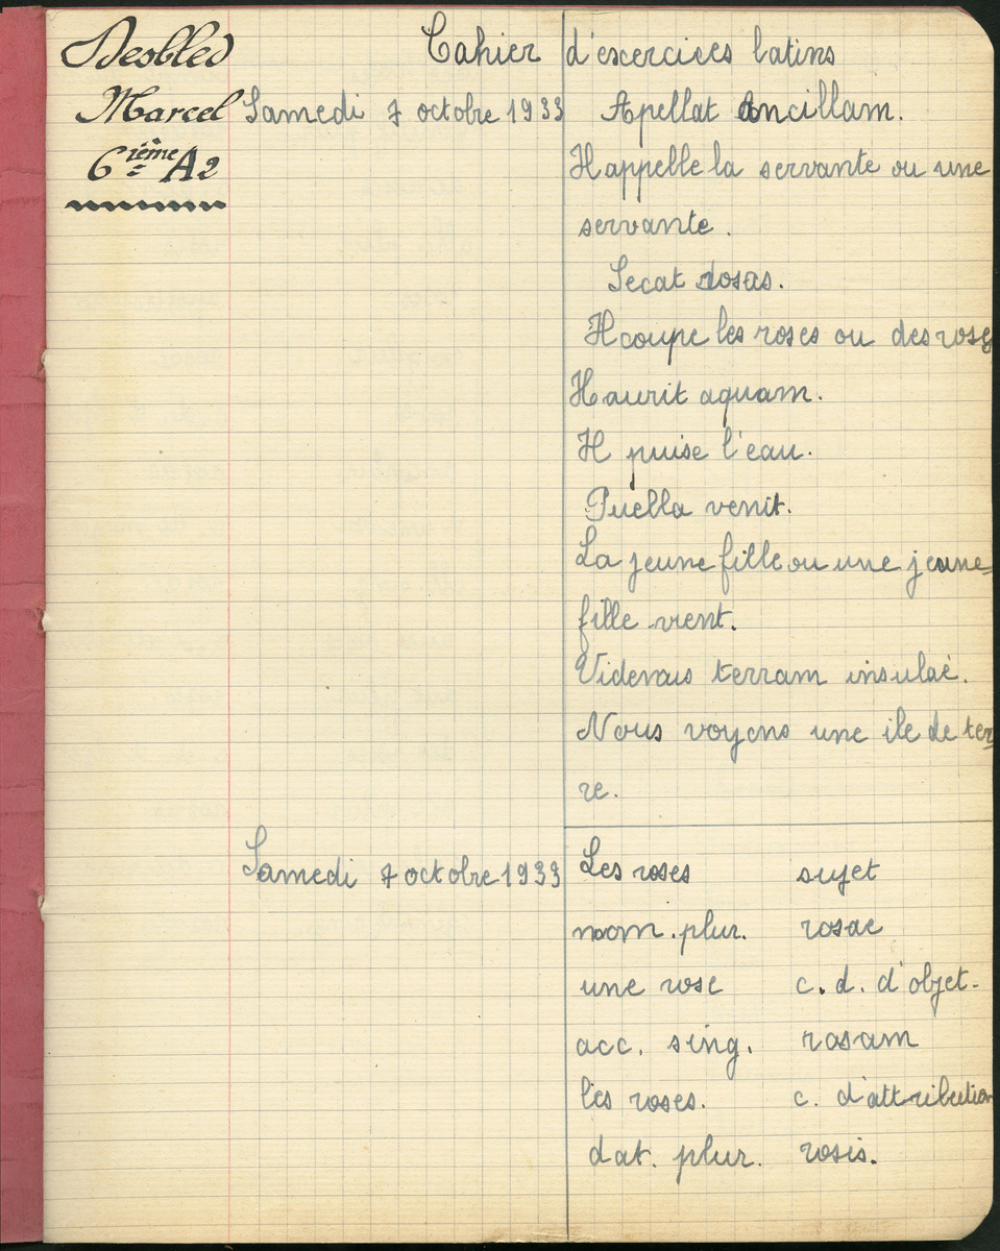 Desbled Cahier d'exercices latins
Marcel Samedi 7 octobre 1933 Apellat ancillam.
6ième A2 Il appelle la servante ou une
servante.
Secat rosas.
Il coupe les roses ou des roses
Haurit aquam.
Il puise l'eau.
Puella venit.
La jeune fille ou une jeune
fille vient.
Videmus terram insulae.
Nous voyons une ile de ter
re.
Samedi 7 octobre 1933 Les roses sujet
nom. plur. rosae
une rose c. d. d'objet.
acc. sing. rosam
les roses. c. d'attribution
dat. plur. rosis.